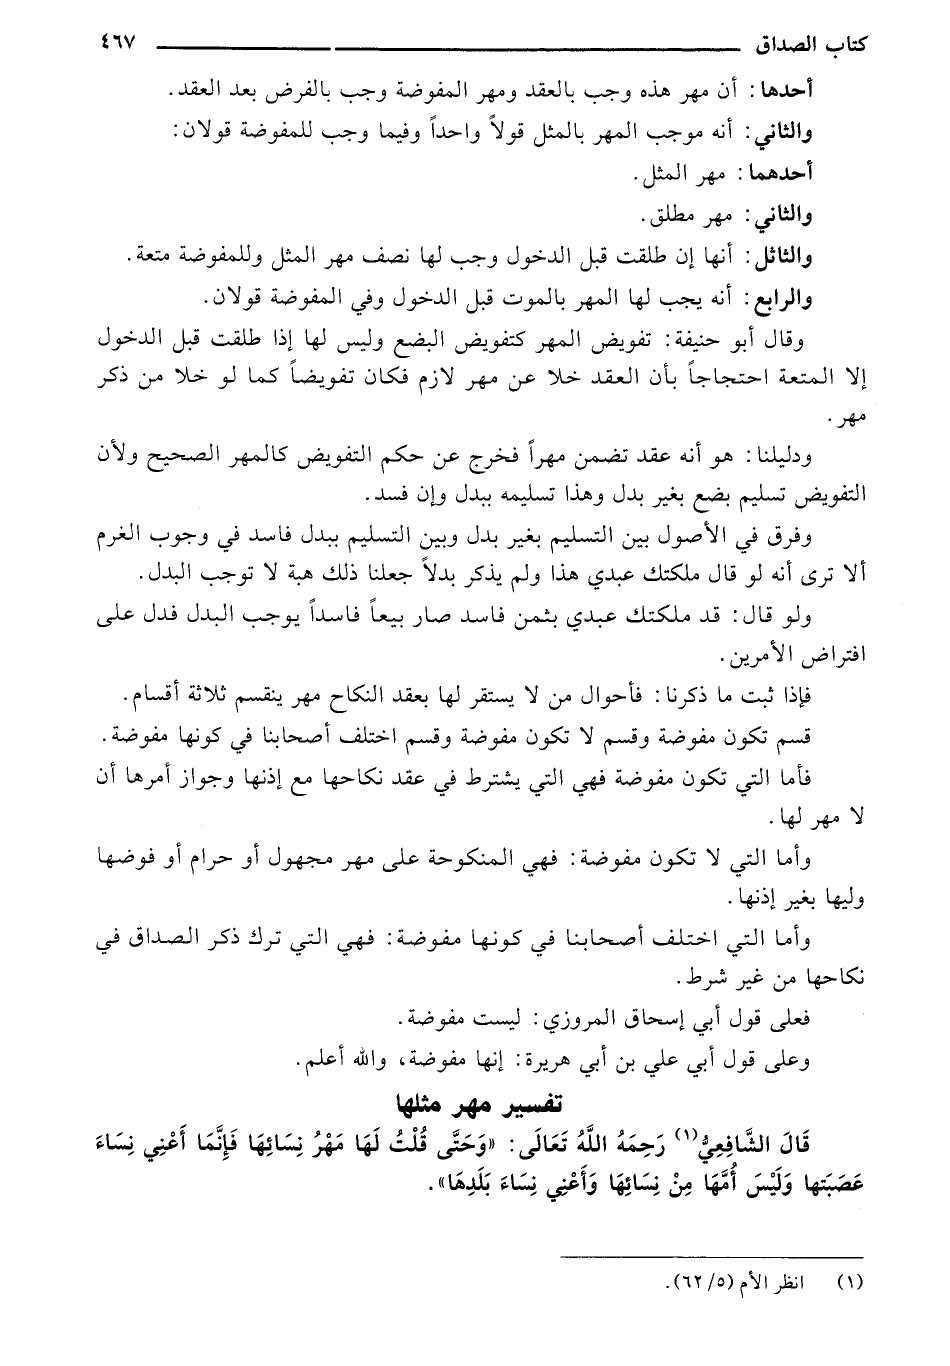 كتاب الصداق ٤٦٧
أحدها: أن مهر هذه وجب بالعقد ومهر المفوضة وجب بالفرض بعد العقد.
والثاني: أنه موجب المهر بالمثل قولاً واحداً وفيما وجب للمفوضة قولان:
أحدهما: مهر المثل.
والثاني: مهر مطلق.
والثاثل: أنها إن طلقت قبل الدخول وجب لها نصف مهر المثل وللمفوضة متعة.
والرابع: أنه يجب لها المهر بالموت قبل الدخول وفي المفوضة قولان.
وقال أبو حنيفة: تفويض المهر كتفويض البضع وليس لها إذا طلقت قبل الدخول
إلا المتعة احتجاجاً بأن العقد خلا عن مهر لازم فكان تفويضاً كما لو خلا من ذكر
مهر.
ودليلنا: هو أنه عقد تضمن مهراً فخرج عن حكم التفويض كالمهر الصحيح ولأن
التفويض تسليم بضع بغير بدل وهذا تسليمه ببدل وإن فسد.
وفرق في الأصول بين التسليم بغير بدل وبين التسليم ببدل فاسد في وجوب الغرم
ألا ترى أنه لو قال ملكتك عبدي هذا ولم يذكر بدلاً جعلنا ذلك هبة لا توجب البدل.
ولو قال: قد ملكتك عبدي بثمن فاسد صار بيعاً فاسداً يوجب البدل فدل على
افتراض الأمرين.
فإذا ثبت ما ذكرنا: فأحوال من لا يستقر لها بعقد النكاح مهر ينقسم ثلاثة أقسام.
قسم تكون مفوضة وقسم لا تكون مفوضة وقسم اختلف أصحابنا في كونها مفوضة.
فأما التي تكون مفوضة فهي التي يشترط في عقد نكاحها مع إذنها وجواز أمرها أن
لا مهر لها.
وأما التي لا تكون مفوضة: فهي المنكوحة على مهر مجهول أو حرام أو فوضها
وليها بغير إذنها.
وأما التي اختلف أصحابنا في كونها مفوضة: فهي التي ترك ذكر الصداق في
نكاحها من غير شرط.
فعلى قول أبي إسحاق المروزي: ليست مفوضة.
وعلى قول أبي علي بن أبي هريرة: إنها مفوضة، والله أعلم.
تفسير مهر مثلها
قَالَ الشَّافِعِيُّ(١) رَحِمَهُ اللَّهُ تَعَالَى: «وَحَتَّى قُلْتُ لَهَا مَهْرُ نِسَائِهَا فَإِنَّمَا أَعْنِي نِسَاءَ
عَصَبَتِها وَلَيْسَ أُمَّهَا مِنْ نِسَائِهَا وَأَعْنِي نِسَاءَ بَلَدِهَا».
(١) انظر الأم (٥/ ٦٢).